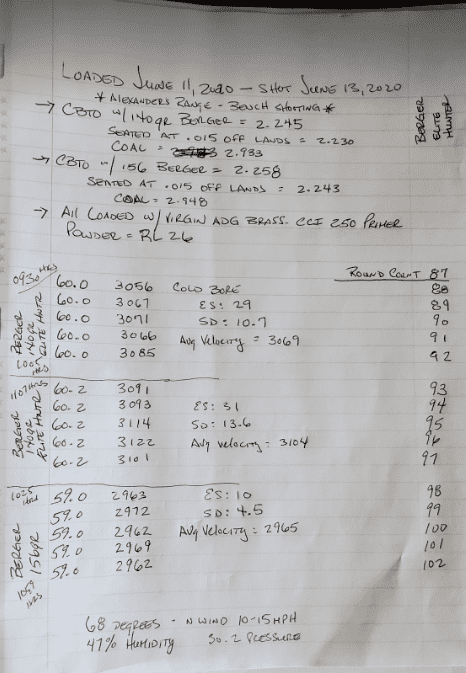 LOADED JUNE 11, 2020 - SHOT JUNE 13, 2020
* ALEXANDERS RANGE - BENCH SHOOTING *
→ CBTO W/ 140gr BERGER = 2.245
SEATED AT .015 OFF LANDS = 2.230
COAL = 2.933
→ CBTO W/ 156 BERGER = 2.258
SEATED AT .015 OFF LANDS = 2.243
COAL = 2.948
→ All LOADED W/ VIRGIN ADG BRASS. CCI 250 PRIMER
POWDER = RL 26
BERGER ELITE HUNTER
ROUND COUNT 87
0930 HRS
BERGER 140gr ELITE HNTR
60.0 3056 COLD BORE 88
60.0 3067 ES: 29 89
60.0 3071 SD: 10.7 90
60.0 3066 Avg Velocity = 3069 91
60.0 3085 92
BERGER 140gr ELITE HNTR
60.2 3091 93
60.2 3093 ES: 31 94
60.2 3114 SD: 13.6 95
60.2 3122 Avg Velocity: 3104 96
60.2 3101 97
1025 HRS
BERGER 156gr
59.0 2963 ES: 10 98
59.0 2972 SD: 4.5 99
59.0 2962 Avg Velocity: 2965 100
59.0 2969 101
59.0 2962 102
68 DEGREES - N WIND 10-15 MPH
47% HUMIDITY 30.2 PRESSURE